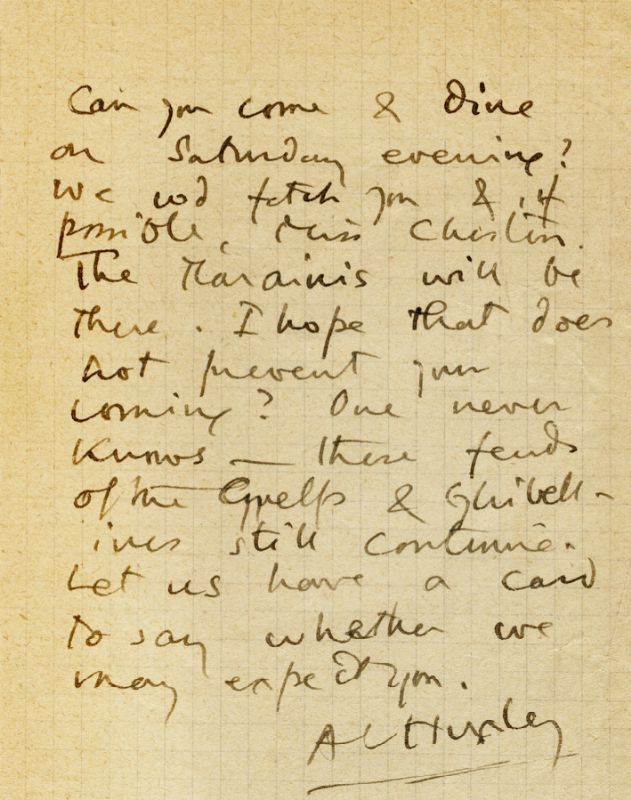 Can you come & dine
on Saturday evening?
We wd fetch you & if
possible, Miss
The Marainis will be
there. I hope that does
not prevent your
coming? One never
knows — these feuds
of the Guelfs & Ghibell-
ines still continue.
Let us have a card
to say whether we
may expect you.
A L Huxley